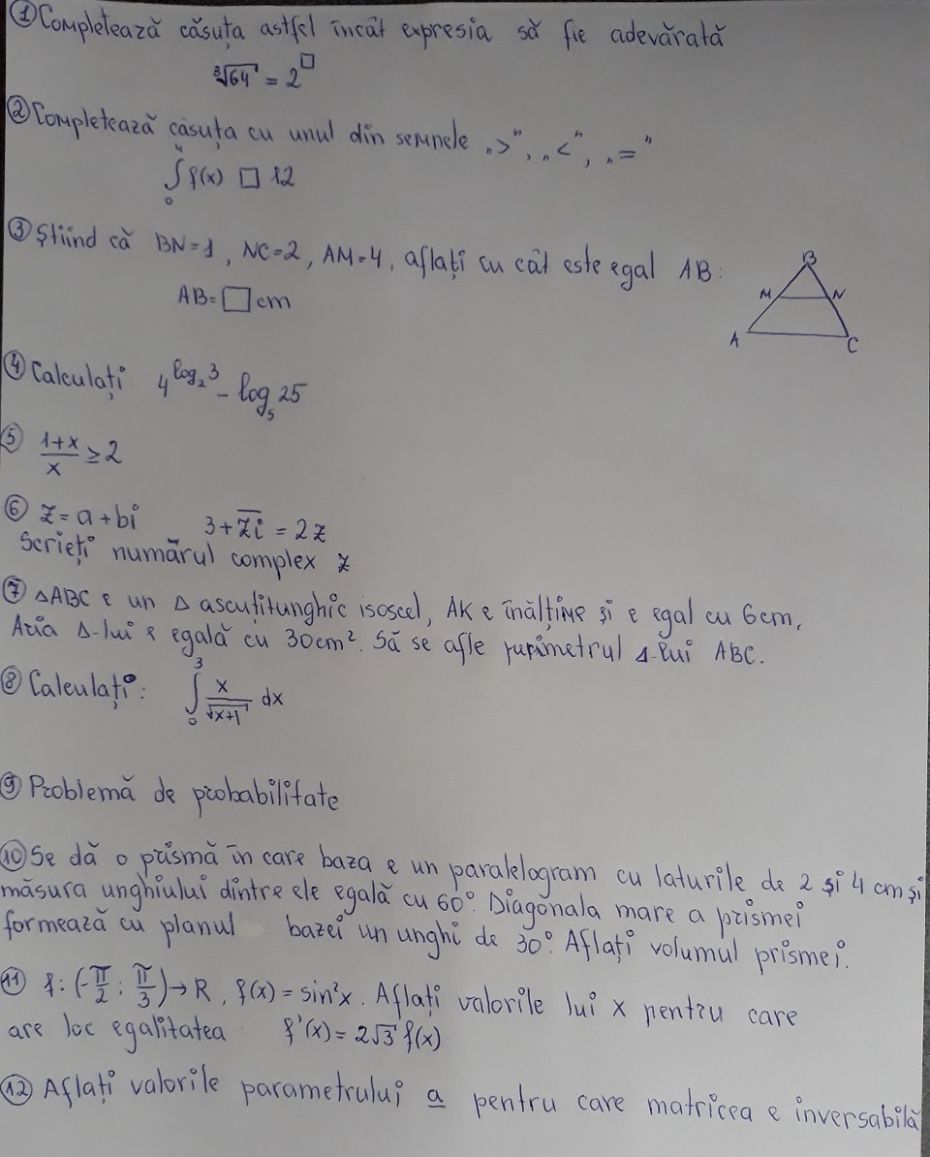 ① Completează căsuța astfel încât expresia să fie adevărată
∛64 = 2^□
② Completează căsuța cu unul din semnele „>”, „<”, „=”
∫₀⁴ f(x) □ 12
③ Știind că BN=1, NC=2, AM=4, aflați cu cât este egal AB:
AB=□ cm
B
M N
A C
④ Calculați 4^(log₂3) - log₅25
⑤ (1+x)/x ≥ 2
⑥ z = a+bi 3+z̄ī = 2z
Scrieți numărul complex z
⑦ ΔABC e un Δ ascuțitunghic isoscel, AK e înălțime și e egal cu 6cm,
Aria Δ-lui e egală cu 30cm². Să se afle perimetrul Δ-lui ABC.
⑧ Calculați: ∫₀³ x/√(x+1) dx
⑨ Problemă de probabilitate
⑩ Se dă o prismă în care baza e un paralelogram cu laturile de 2 și 4 cm și
măsura unghiului dintre ele egală cu 60°. Diagonala mare a prismei
formează cu planul bazei un unghi de 30°. Aflați volumul prismei.
⑪ f: (-π/2; π/3)→R, f(x) = sin²x. Aflați valorile lui x pentru care
are loc egalitatea f'(x) = 2√3 f(x)
⑫ Aflați valorile parametrului a pentru care matricea e inversabilă